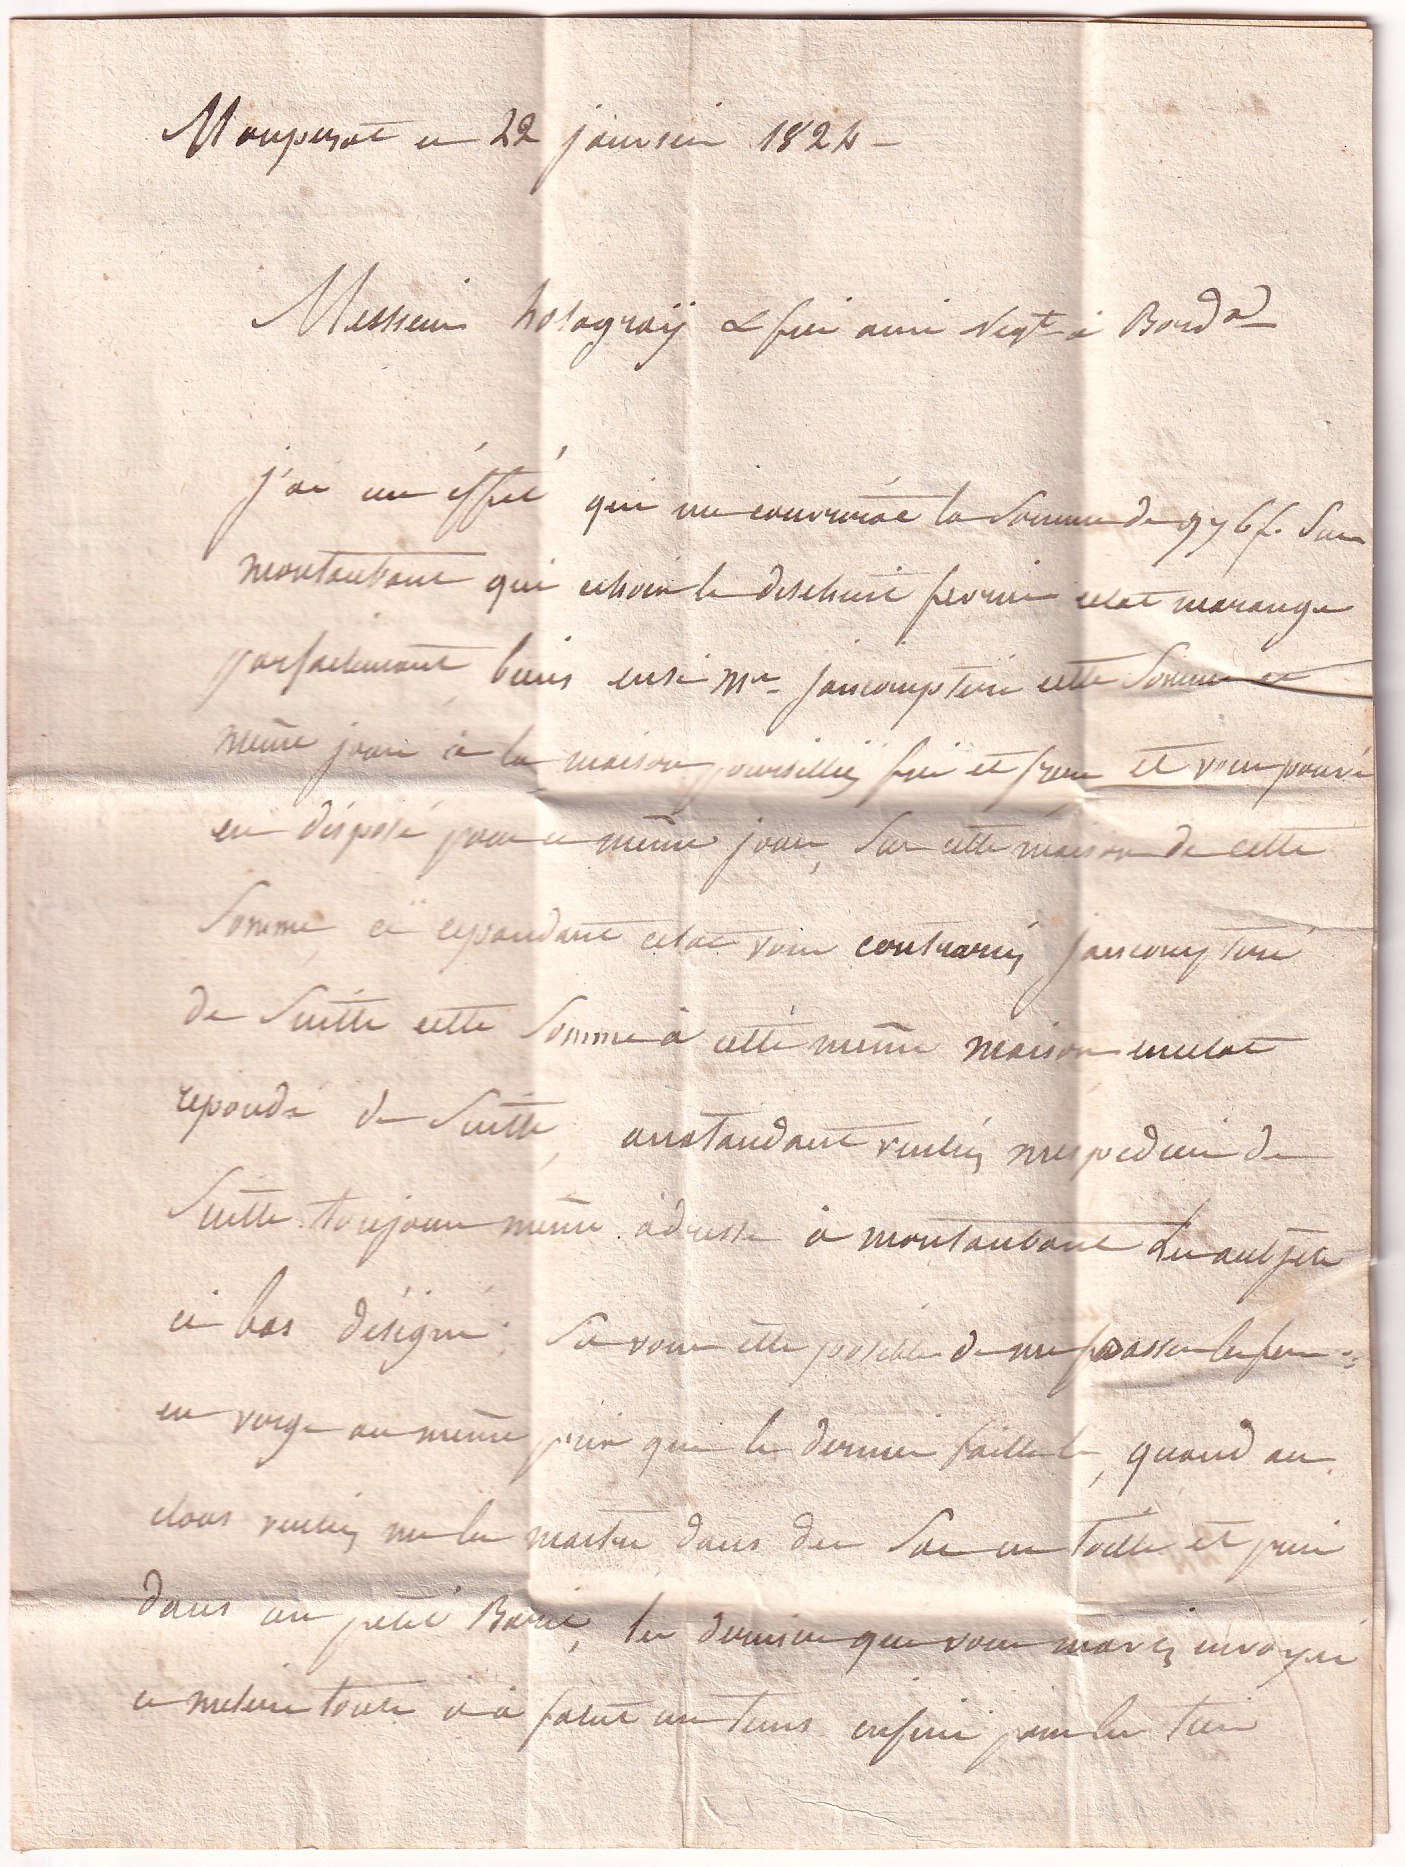 Monpezat ce 22 janvier 1824
Messieurs holagraÿ & fils ainé Negt à Bordx
j'ai un éffét qui me couvrirat la somme de 976 f. sur
montauban qui echoir le diset huit fevrier celat marange
parfaitement biens ensi Mr. j'aiscompterè cette somme ce
même jour à la maison fils et frere et vous pouvé
en disposé pour ce même jour, sur cette maison de cette
somme, ci cependant celat vous contrariéz j'aiscompteré
de suitte cette somme à cette même maison
repondé de suitte, anatandant veuliéz mespedier de
suitte toujour même adresse à montauban Les aubjets
ci bas désigné; si vous ette posible de me passer les fers
en verge au même prix que le dernier faitte le, quand au
clous veuliéz me les maitre dans des sac en toille et puis
dans un petit Baril, les derniers que vous m'avez envoyé
ce metère toute il a falut un tems enfini pour les trié